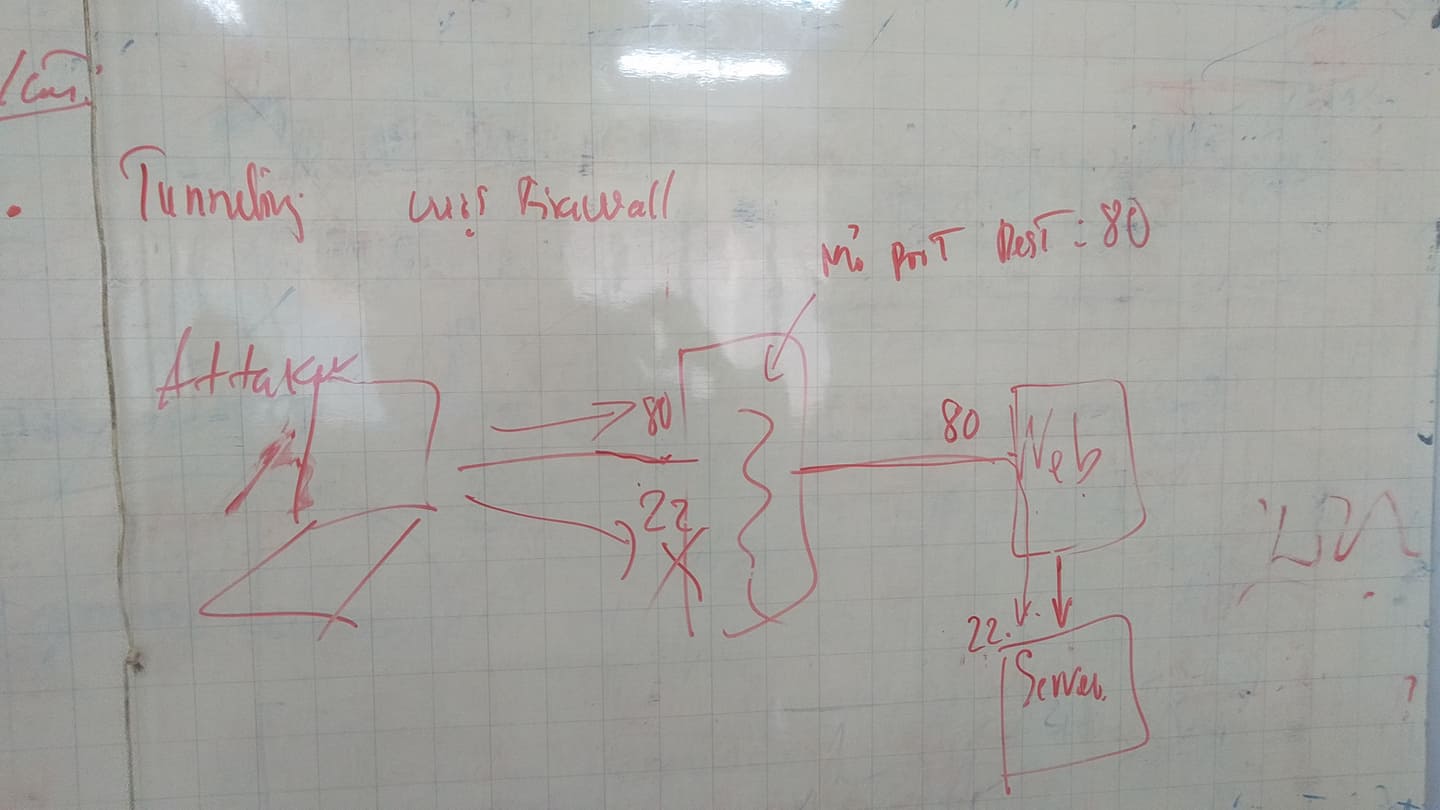 Tunneling vượt Firewall
Mở port Dest: 80
Attaker
80
80
Web
22
22.
Server.